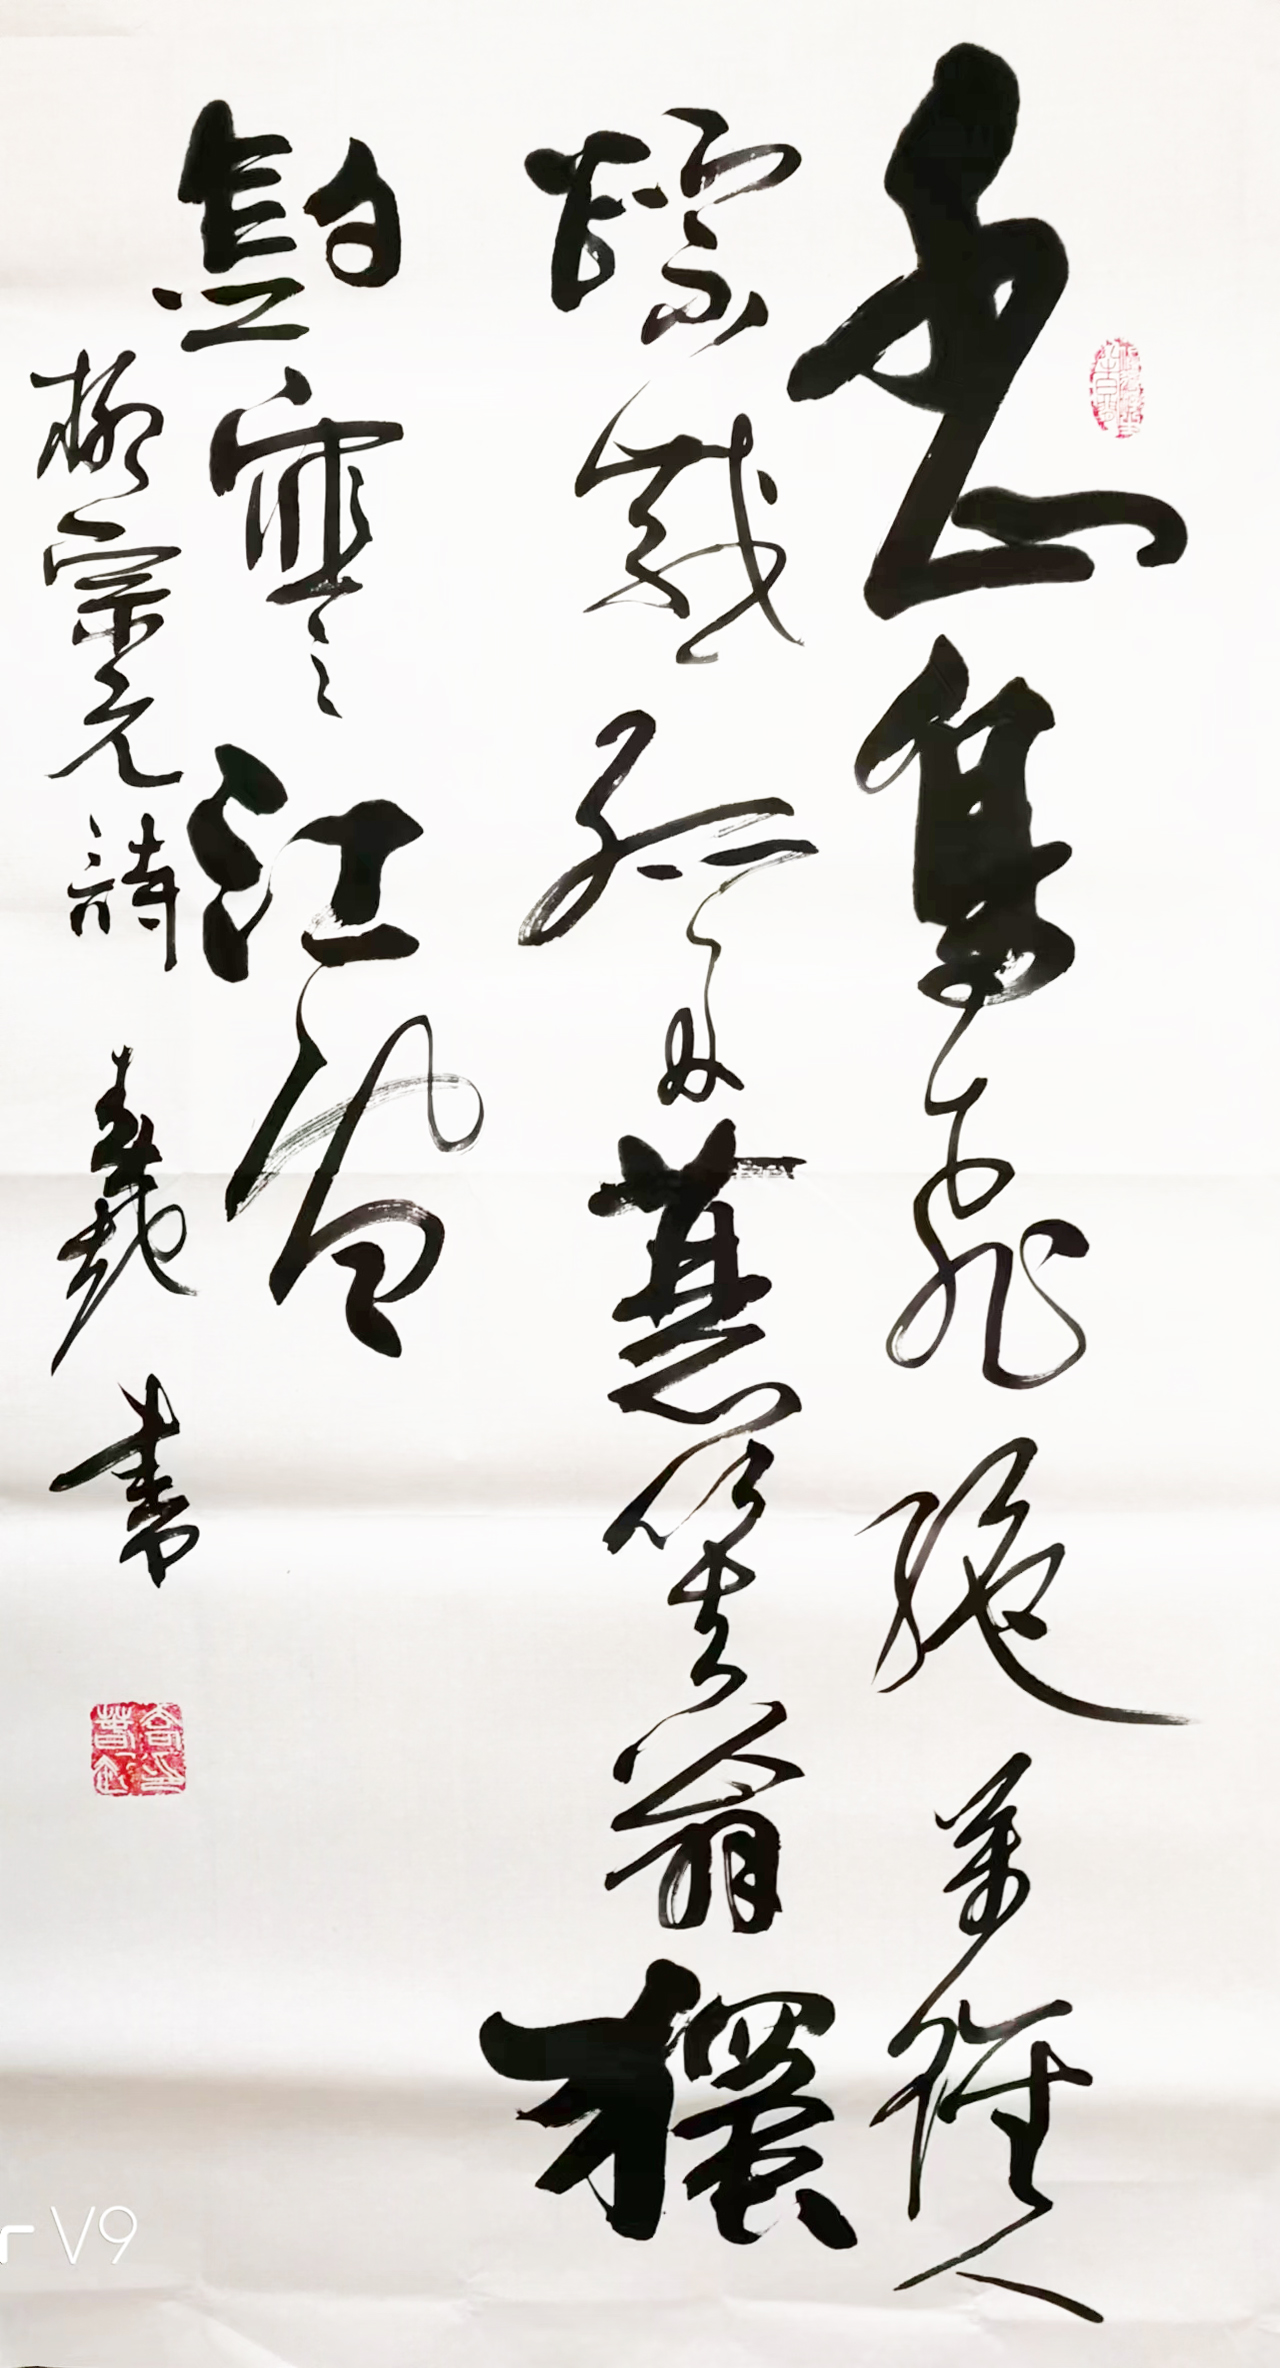 千山鳥飛絕萬徑人
蹤滅孤舟蓑笠翁獨
釣寒江雪
柳宗元詩 書
V9